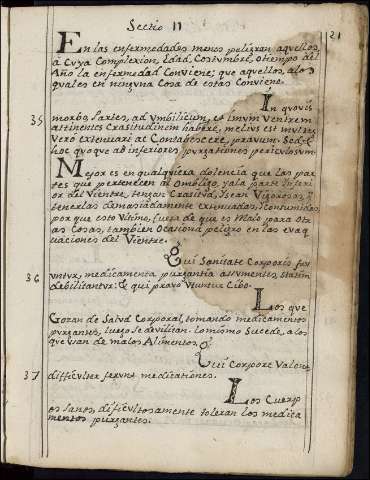 Sectio II
21
En las enfermedades menos peligran aquellos,
à Cuya Complexion, Edad, Costumbre, ò tiempo del
Año la enfermedad Conviene; que aquellos, a los
quales en ninguna Cosa de estas Conviene.
In quovis
35 morbo, Partes, ad Vmbilicum, et Imum Ventrem
attinentes Crasitudinem habere, melius est: multum
Vero extenuari, ac Contabescere, pravum. Sed &
hoc quoque ad inferiores purgationes periculosum.
Mejor es en qualquiera dolencia que las par
tes que pertenecen al Ombligo, y a la parte Inferi
or del Vientre, tengan Crasitud, y sean Vigorosas; y
tenerlas demasiadamente extenuadas, y Consumidas,
por que esto Ultimo, fuera de que es Malo para Ot
as Cosas, tambien Ocasiona peligro en las evaq
uaciones del Vientre.
Qui Sanitate Corporis fru
36 untur, medicamenta purgantia assumentes, statim
debilitantur: & qui pravo Vtuntur Cibo.
Los que
Gozan de Salud Corporal, tomando medicamentos
purgantes, luego se devilitan. lo mismo Sucede, a los
que usan de malos Alimentos.
Qui Corpore Valent
37 difficulter ferunt medicationes.
Los Cuerp
os sanos, dificultosamente toleran los medica
mentos purgantes.